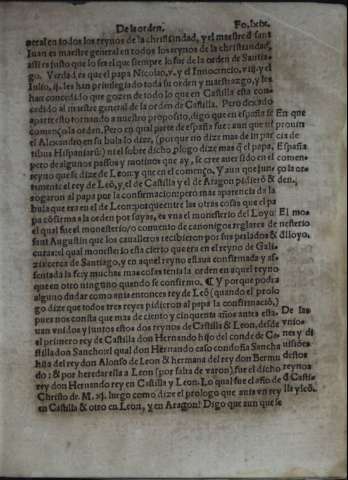 De la orden.
Fo.lxix.
neral en todos los reynos de la christiandad, y el maestre đ sant
Iuan es maestre general en todos los reynos de la christiandad,
assi es justo que lo sea el que siempre lo fue de la orden de Santia-
go. Verdad es que el papa Nicolao, v. y el Innocencio, viij. y el
Iulio, ij. les han privilegiado toda su orden y maestrazgo, y les
han concedido que gozen de todo lo que en Castilla esta con-
cedido al maestre general de la orden de Castilla. Pero dexado
aparte esto tornando a nuestro proposito, digo que en españa se
començo la orden. Pero en qual parte de españa fue: aun que ni
el Alexandro en su bula lo dize, (porque no dize mas de in par
tibus Hispaniarũ) ni el sobre dicho plogo dize mas đ el papa,
pero de algunos passos y motivos que ay, se cree auer sido en el
reyno que se dize de Leon: y que en el començo. Y aun que juntamente
el rey de Leõ, y el de Castilla y el de Aragon pidierõ &
rogaron al papa por la confirmacion: pero mas aparencia da la
bula que era en el de Leon: porque entre las otras cosas que el pa
pa cõfirma a la orden por suyas, es vna el monesterio del Loyo:
el qual fue el monesterio/o conuento de canonigos reglares de
sant Augustin que los caualleros recibieron por sus prelados &
curas: el qual monesterio esta cierto que era en el reyno de Gali-
zia cerca de Santiago, y en aquel reyno estaua confirmada y as-
sentada la fe, y muchas mas cosas tenia la orden en aquel reyno
que en otro ninguno quando se confirmo. ¶ Y porque podra
alguno dudar como auia entonces rey de Leõ (quando el prolo
go dize que todos tres reyes pidieron al papa la confirmació,)
pues nos consta que mas de ciento y cinquenta años antes esta-
uan vnidos y juntos estos dos reynos de Castilla & Leon, desde
el primero rey de Castilla don Hernando hijo del conde de Ca-
stilla don Sancho: el qual don Hernando caso con doña Sancha
hija del rey don Alonso de Leon & hermana del rey don Bermu
do: & por heredar ella a Leon (por falta de varon) fue el dicho
rey don Hernando rey en Castilla y Leon. Lo qual fue el año de
Christo de M. xj. luego como dize el prologo que auia vn rey
en Castilla & otro en Leon, y en Aragon? Digo que aun que se
En que
prouin
cia de
España
comen-
ço la or
den.
El mo-
nesterio
đ lloyo.
De las
vnio-
nes y di
uisiões
destos
reynos
đ Casti-
lla y leõ.